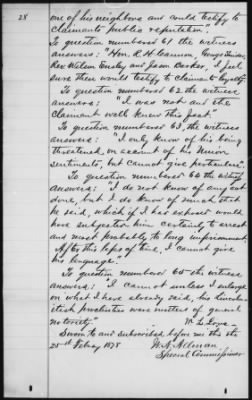 28
one of his neighbors and could testify to
claimants public reputation".
To question numbered 61 the witness
answers: "Hon. R. H. Cannon, George
Rev Wilson and Jason Barker. I feel
sure these would testify to claimants loyalty
To question numbered 62 the witness
answers: "I was not and the
claimant well knew this fact."
To question numbered 63, the witness
answers: "I only know of his being
threatened, on account of his Union
sentiments, but cannot give particulars".
To question numbered 66 the witness
answers: "I do not know of any act
done, but I do know of much that
he said, which if I had exposed would
have subjected him certainly to arrest
and most probably to long imprisonment.
After this lapse of time, I cannot give
his language."
To question numbered 68 the witness
answers: "I cannot unless I enlarge
on what I have already said, his
proclivities were matters of general
notoriety"
W. L.
Sworn to and subscribed before me this the
25th Feb'ry 1878
W. A. Allman
Special Commissioner